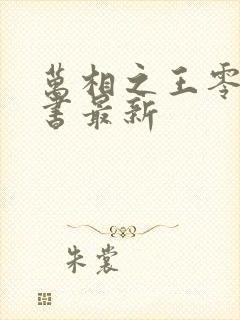 萬相之王零
書最新
朱裳